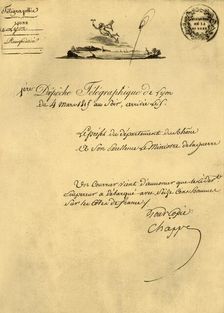 Télégraphie
LIGNE
de Lyon
1ère Dépêche Télégraphique de Lyon
du 4 Mars 1815 au soir, arrivée le 5
Le préfet du département du Rhône
à Son Excellence Le Ministre de la guerre
Un Courrier vient d'annoncer que le der
Empereur a débarqué avec Seize Cens hommes
Sur les Côtes de france
Pour Copie
Chappe